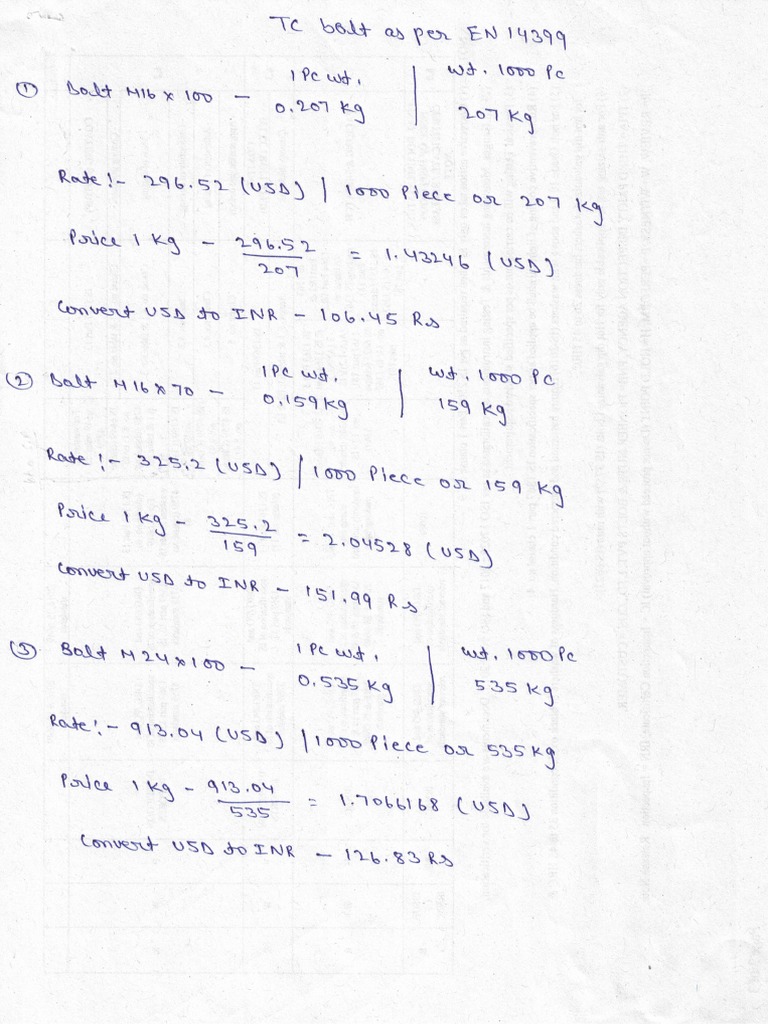 TC bolt as per EN 14399
① Bolt M16 x 100 - 1 Pc wt. | wt. 1000 Pc
0.207 Kg | 207 Kg
Rate :- 296.52 (USD) | 1000 Piece or 207 Kg
Price 1 Kg - 296.52 / 207 = 1.43246 (USD)
Convert USD to INR - 106.45 Rs
② Bolt M16 x 70 - 1 Pc wt. | wt. 1000 Pc
0.159 Kg | 159 Kg
Rate :- 325.2 (USD) | 1000 Piece or 159 Kg
Price 1 Kg - 325.2 / 159 = 2.04528 (USD)
Convert USD to INR - 151.99 Rs
③ Bolt M24 x 100 - 1 Pc wt. | wt. 1000 Pc
0.535 Kg | 535 Kg
Rate :- 913.04 (USD) | 1000 Piece or 535 Kg
Price 1 Kg - 913.04 / 535 = 1.7066168 (USD)
Convert USD to INR - 126.83 Rs